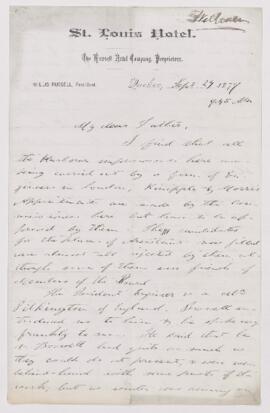 St. Louis Hotel.
The Russell Hotel Company, Proprietors.
WILLIS RUSSELL, President.
Quebec, Sept. 27 1877
9.45 AM
My dear Father,
I find that all
the Harbour improvements here are
being carried out by a firm of En-
gineers in London, Kinipple & Morris
Appointments are made by the Com-
missioners here but have to be ap-
proved by them. The candidates
for the places of Assistants now filled
were almost all rejected by them al-
though some of them were friends of
Members of the Board
The Resident Engineer is a Mr.
Pilkington of England,
introduced me to him & he spoke very
frankly to me. He said that he
& had quite as much as
they could do at present, & were even
behind-hand with some parts of the
work, but as winter was coming on